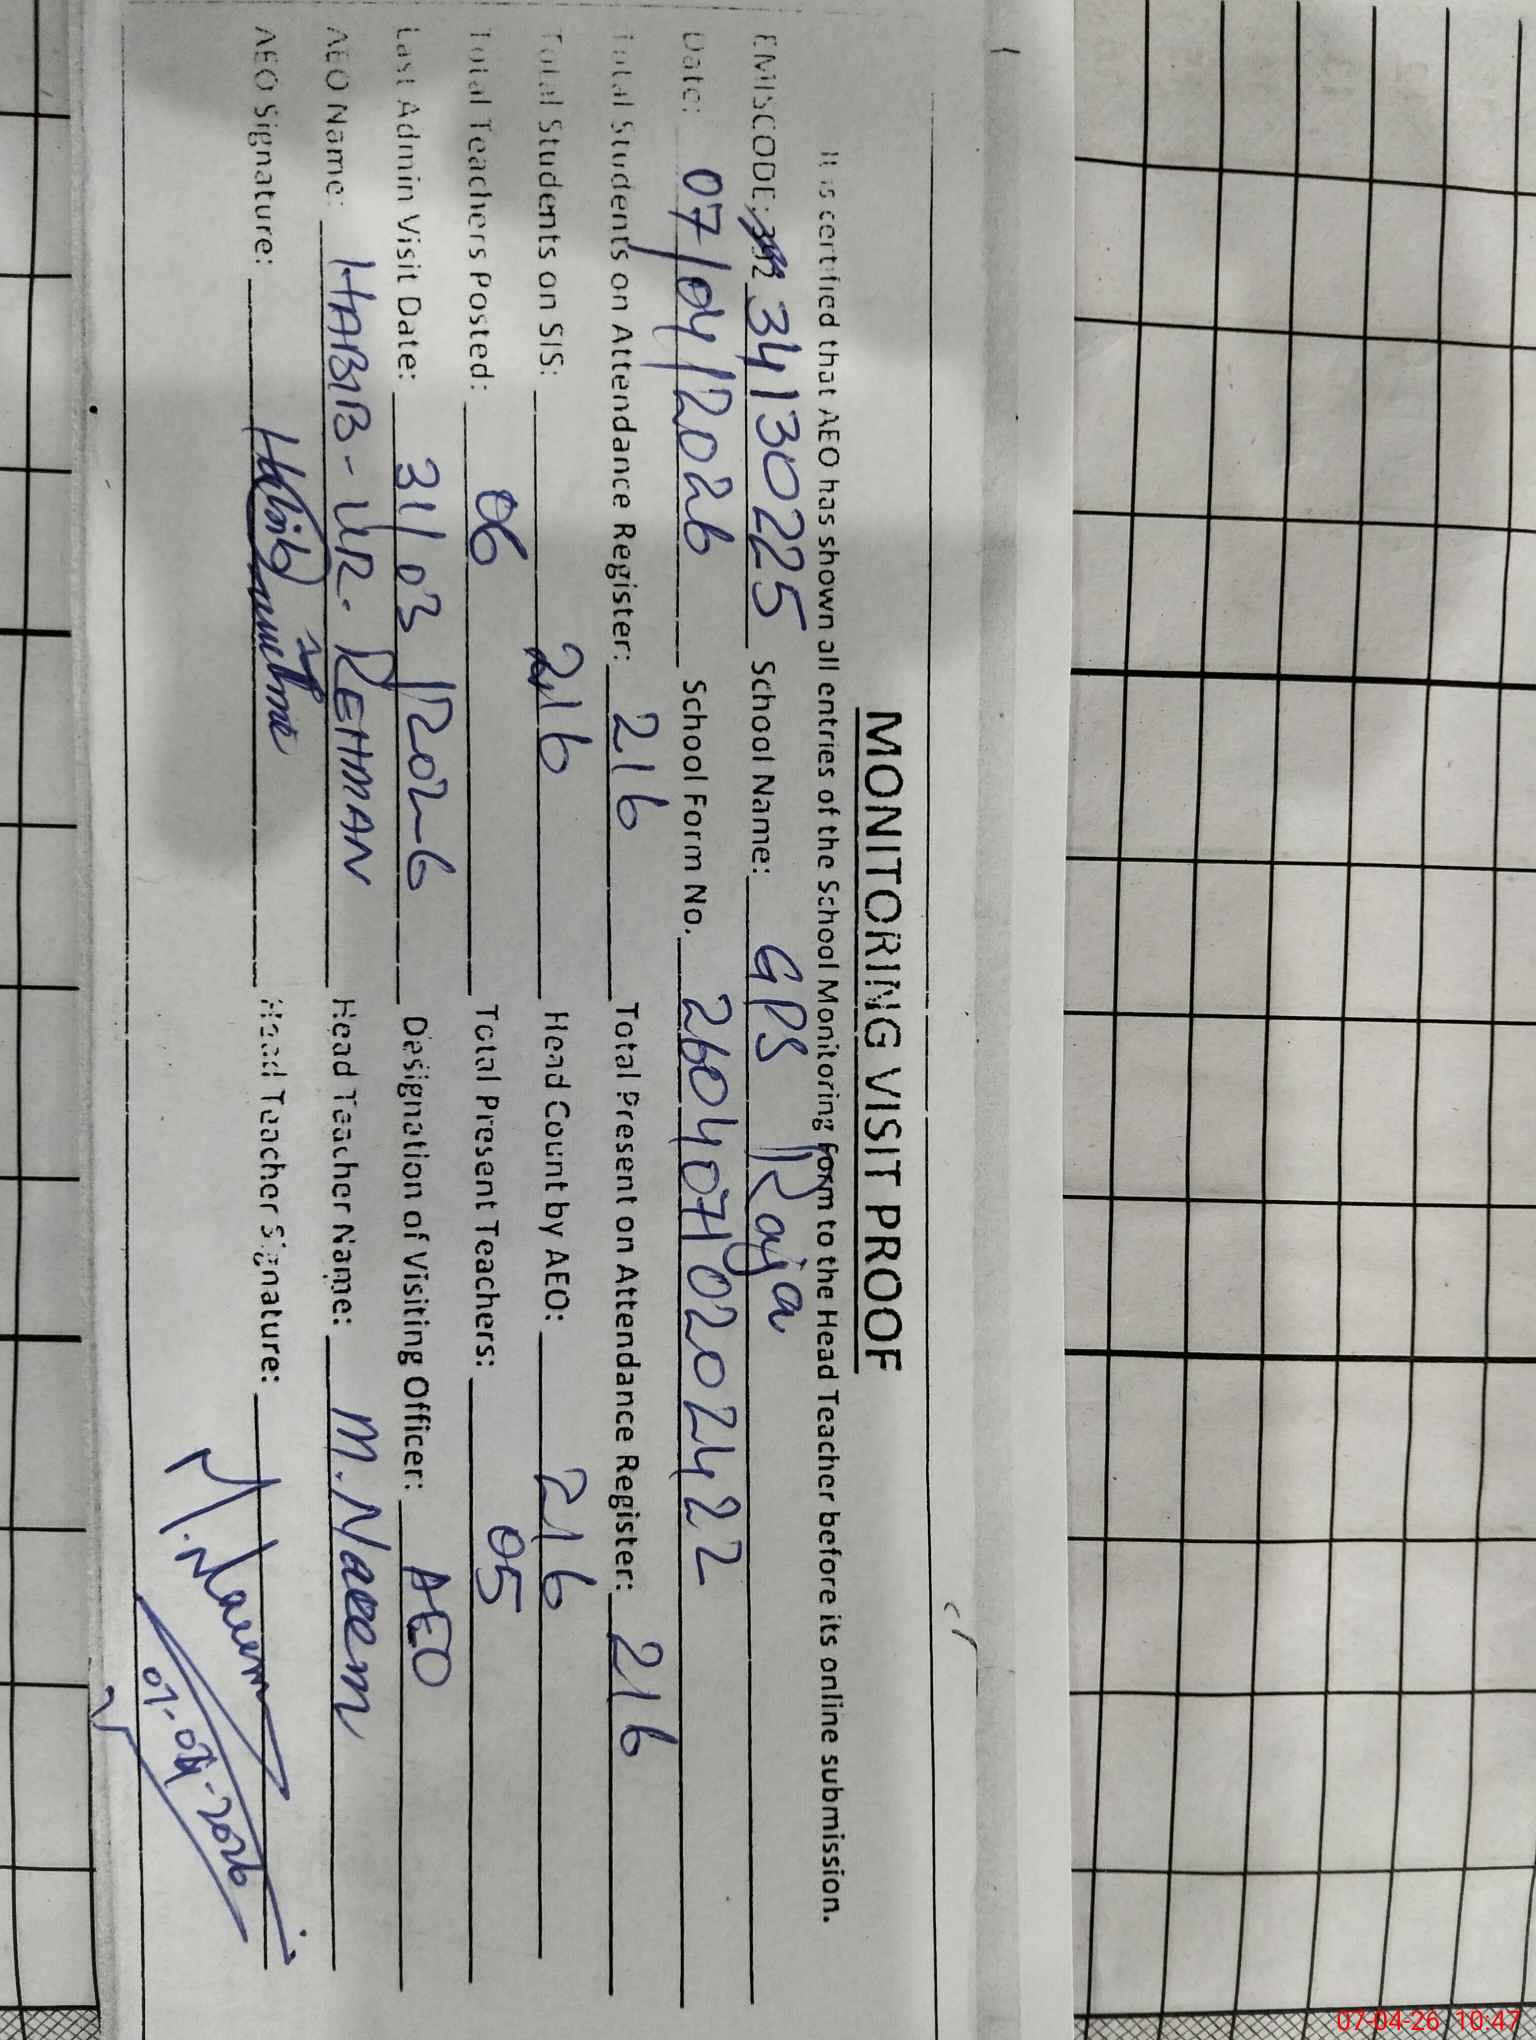 MONITORING VISIT PROOF
It is certified that AEO has shown all entries of the School Monitoring form to the Head Teacher before its online submission.
EMISCODE: 34130225 School Name: GPS Raja
Date: 07/04/2026 School Form No. 2604071020242 2
Total Students on Attendance Register: 216 Total Present on Attendance Register: 216
Total Students on SIS: 216 Head Count by AEO: 216
Total Teachers Posted: 06 Total Present Teachers: 05
Last Admin Visit Date: 31/03/2026 Designation of Visiting Officer: AEO
AEO Name: HABIB-UR-REHMAN Head Teacher Name: M. Naeem
AEO Signature: Head Teacher Signature: M. Naeem
07-04-2026
07-04-26 10:47